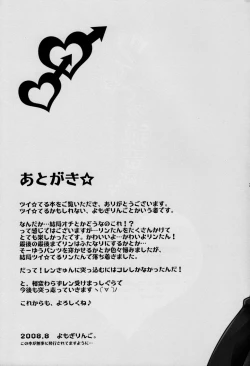 あとがき☆
ツイ☆てる本をご覧いただき、ありがとうございます。
ツイ☆てるかもしれない、よもぎりんごとかいう者です。
なんだか…結局オチとかどうなのこれ！？
って感じではございますが…リンたんをたくさんかけて
とても楽しかったです。かわいいよ…かわいいよリンたん！
最後の最後までリンはふたなりにするとか…
そーゆうパンツを穿かせるかとか色々悩みましたが、
結局ツイ☆てるリンたんで落ち着きました。
だって！レンきゅんに突っ込むにはコレしかなかったんだ！
と、相変わらずレン受けまっしぐらで
今後も突っ走っていきますヽ(´∀`)ノ
これからも、よろしくね♪
2008,8　よもぎりんご。
この本が無事に発行されてますように…